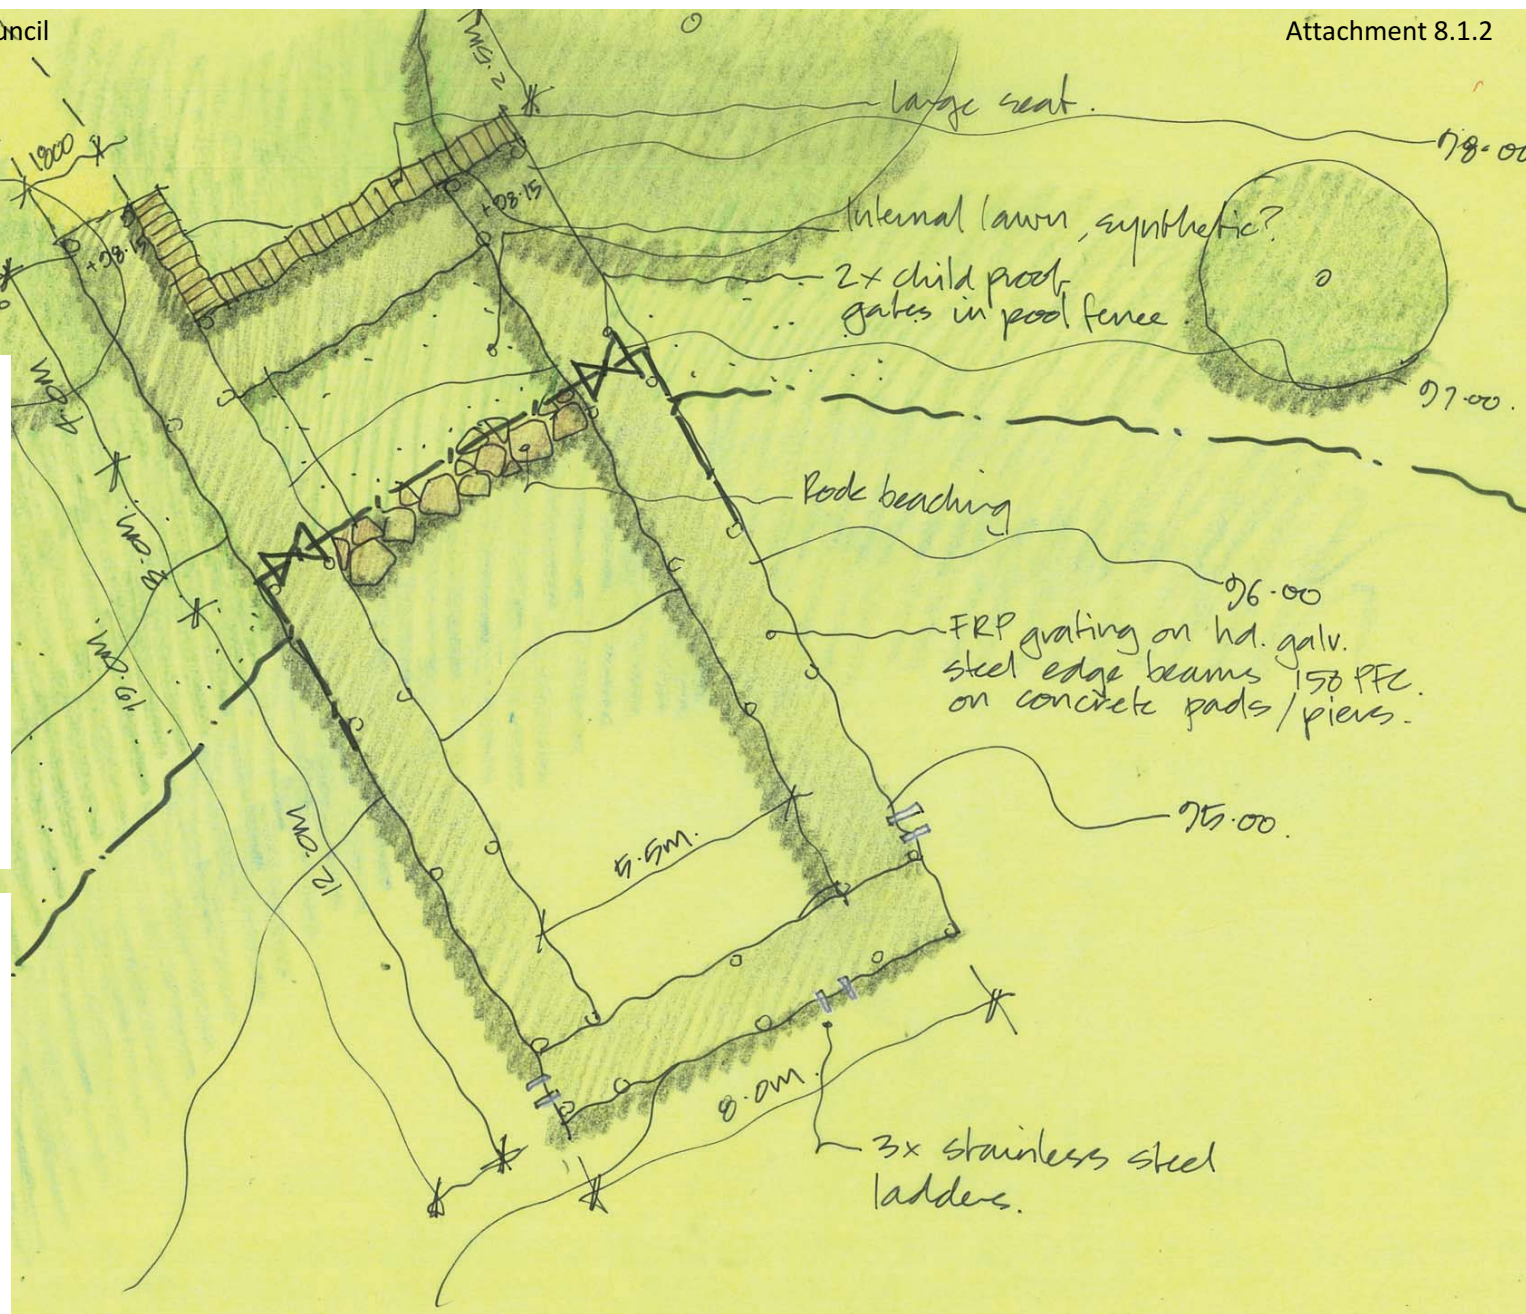 uncil
Attachment 8.1.2
2.5m
large seat.
98.00
1800
+98.15
+98.15
Internal lawn, synthetic?
2x child proof
gates in pool fence.
97.00.
4.0m
Rock beaching
3.0m.
96.00
FRP grating on hd. galv.
steel edge beams 150 PFC.
on concrete pads/piers.
19.0m.
95.00.
12.0m
5.5m.
8.0m.
3x stainless steel
ladders.